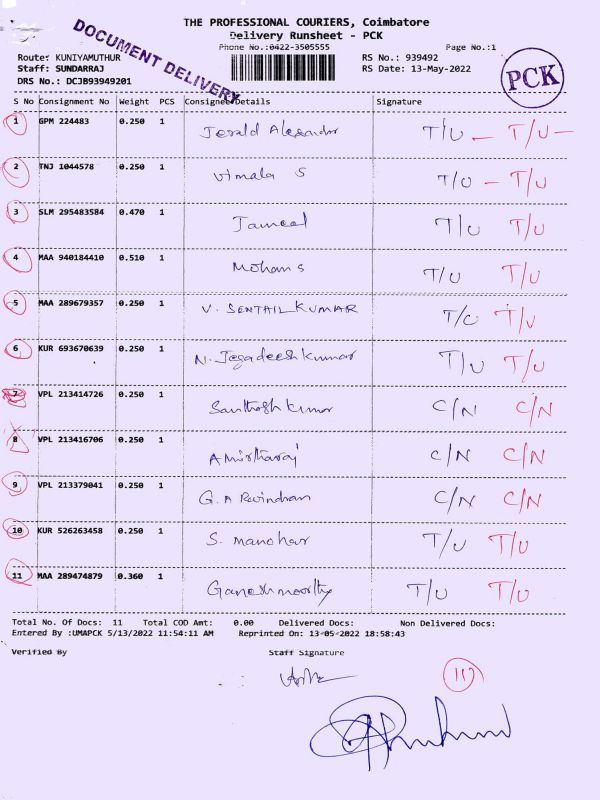 THE PROFESSIONAL COURIERS, Coimbatore
Delivery Runsheet - PCK
DOCUMENT DELIVERY
Phone No.:0422-3505555 Page No.:1
Route: KUNIYAMUTHUR RS No.: 939492
Staff: SUNDARRAJ RS Date: 13-May-2022
PCK
DRS No.: DCJB93949201
S No Consignment No Weight PCS Consignee Details Signature
1 GPM 224483 0.250 1 Jerald Alexander T/U - T/U -
2 TNJ 1044578 0.250 1 Vimala S T/U - T/U
3 SLM 295483584 0.470 1 Jameel T/U T/U
4 MAA 940184410 0.510 1 Mohan S T/U T/U
5 MAA 289679357 0.250 1 V. SENTHIL KUMAR T/U T/U
6 KUR 693670639 0.250 1 N. Jegadeesh Kumar T/U T/U
7 VPL 213414726 0.250 1 Santhosh Kumar C/N C/N
8 VPL 213416706 0.250 1 Amirtharaj C/N C/N
9 VPL 213379041 0.250 1 G. A Ravindran C/N C/N
10 KUR 526263458 0.250 1 S. Manohar T/U T/U
11 MAA 289474879 0.360 1 Ganeshmoorthy T/U T/U
Total No. Of Docs: 11 Total COD Amt: 0.00 Delivered Docs: Non Delivered Docs:
Entered By :UMAPCK 5/13/2022 11:54:11 AM Reprinted On: 13-05-2022 18:58:43
Verified By Staff Signature